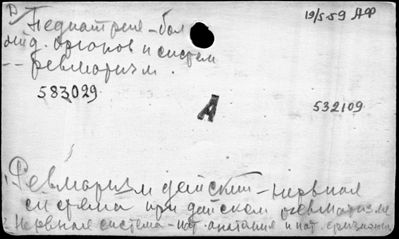 Педиатрия – бол.
отд. органов и систем
-- ревматизм.
19/5-59 АФ
583029
А
532109
Ревматизм детский – нервная
система при детском ревматизме
2 Нервная система – пат. анатомия и пат. физиология